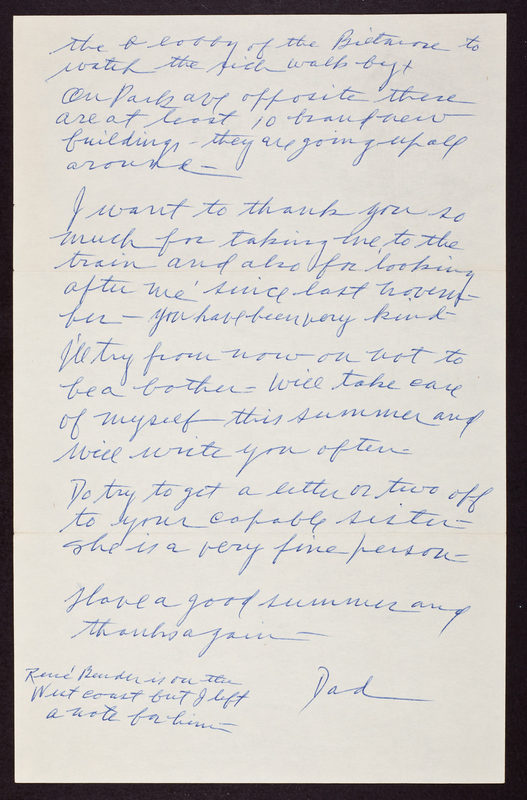 the lobby of the Biltmore to
watch the rich walk by +
On Park ave opposite there
are at least 10 brand new
buildings - they are going up all
around —
I want to thank you so
much for taking me to the
train and also for looking
after me since last novem-
ber — you have been very kind -
I'll try from now on not to
be a bother - Will take care
of myself this summer and
Will write you often -
Do try to get a letter or two off
to your capable sister -
she is a very fine person -
Have a good summer and
thanks again —
Dad
René Bender is on the
West coast but I left
a note for him -